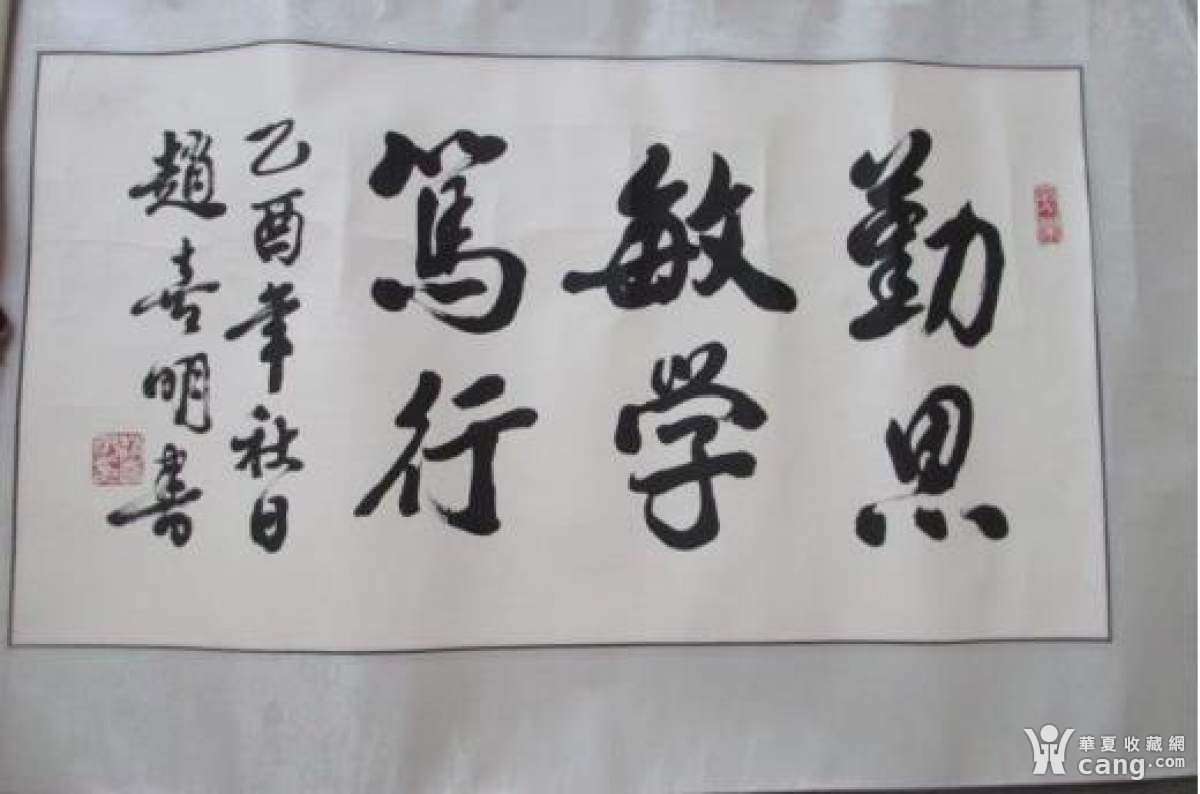 勤思
敏学
篤行
乙酉年秋日
趙喜明書
華夏收藏網
cang.com